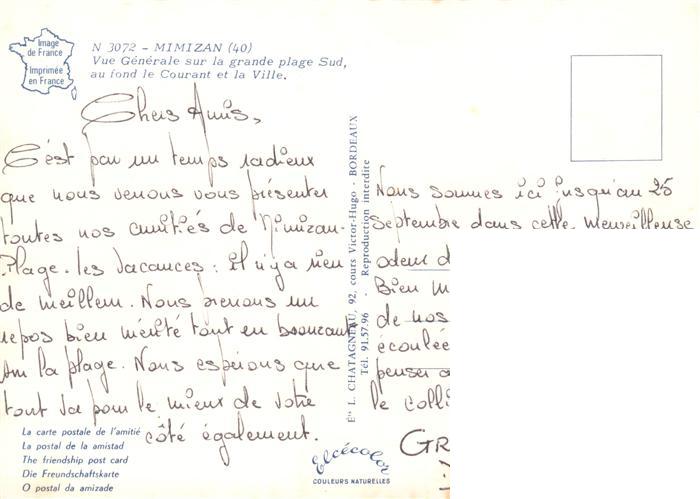 Image
de France
Imprimée
en France
N 3072 - MIMIZAN (40)
Vue Générale sur la grande plage Sud,
au fond le Courant et la Ville.
Chers Amis,
C'est par un temps radieux
que nous venons vous présenter
toutes nos amitiés de Mimizan-
Plage. Les vacances : il n'y a rien
de meilleur. Nous prenons un
repos bien mérité tout en bronzant
sur la plage. Nous espérons que
tout va pour le mieux de votre
côté également.
La carte postale de l'amitié
La postal de la amistad
The friendship post card
Die Freundschaftskarte
O postal da amizade
Ets L. CHATAGNEAU, 92, cours Victor-Hugo - BORDEAUX
Tél. 91.57.96 - Reproduction interdite
Elcécolor
COULEURS NATURELLES
Nous sommes ici jusqu'au 25
septembre dans cette merveilleuse
odeur d
Bien m
de nos
écoulée
penser a
le colli
GR